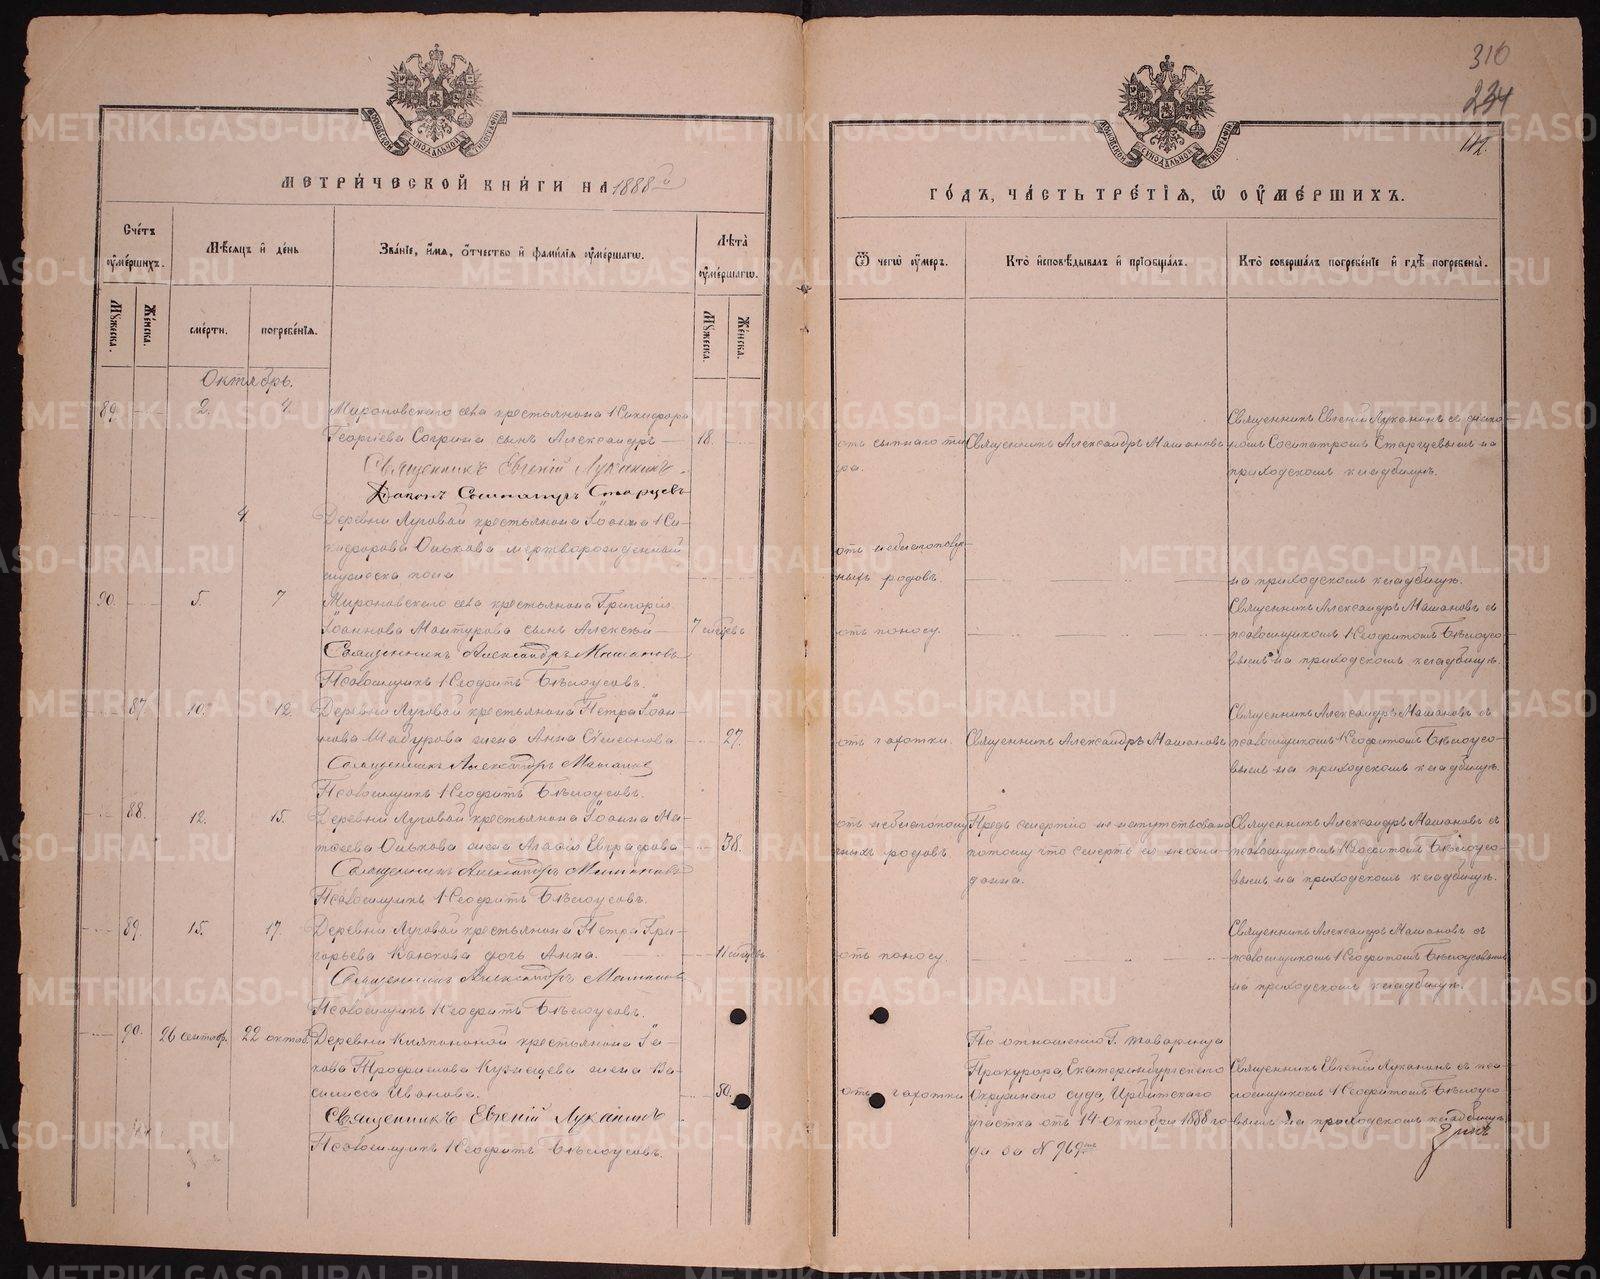 310
234
МЕТРИЧЕСКОЙ КНИГИ НА 1888й
ГОДЪ, ЧАСТЬ ТРЕТІЯ, Ѿ ОУМЕРШИХЪ.
Счетъ оумершихъ.
Мѣсяцъ и день
Званіе, имя, отчество и фамилія оумершагѡ.
Лѣта оумершагѡ.
Ѿ чегѡ оумеръ.
Кто исповѣдывалъ и пріобщалъ.
Кто совершалъ погребеніе и гдѣ погребены.
Мужеска.
Женска.
смерти.
погребенія.
Мужеска.
Женска.
Октябрь.
89. 2. 4. Мироновскаго села крестьянина Никифора
Георгіева Согрина сынъ Александръ 18.
Священникъ Евгеній Луканинъ
Діаконъ Сосипатръ Старцевъ
отъ сыпнаго ти-
фа.
Священникъ Александръ Машановъ
Священникъ Евгеній Луканинъ съ діако-
номъ Сосипатромъ Старцевымъ на
приходскомъ кладбищѣ.
4 Деревни Луговой крестьянина Іоанна Ни-
кифорова Олькова мертворожденный
мужеска пола
отъ неблагополуч-
ныхъ родовъ.
на приходскомъ кладбищѣ.
90. 5. 7 Мироновскаго села крестьянина Григорія
Іоаннова Мантурова сынъ Алексѣй 7 мѣсяцевъ
Священникъ Александръ Машановъ
Псаломщикъ Неофитъ Бѣлоусовъ.
отъ поносу.
Священникъ Александръ Машановъ съ
псаломщикомъ Неофитомъ Бѣлоусо-
вымъ на приходскомъ кладбищѣ.
87. 10. 12. Деревни Луговой крестьянина Петра Іоан-
нова Шабурова жена Анна Сѵмеонова 27.
Священникъ Александръ Машановъ
Псаломщикъ Неофитъ Бѣлоусовъ.
отъ чахотки.
Священникъ Александръ Машановъ
Священникъ Александръ Машановъ съ
псаломщикомъ Неофитомъ Бѣлоусо-
вымъ на приходскомъ кладбищѣ.
88. 12. 15. Деревни Луговой крестьянина Іоанна Ма-
тѳеева Олькова жена Агаѳія Евграфова 38.
Священникъ Александръ Машановъ
Псаломщикъ Неофитъ Бѣлоусовъ.
отъ неблагополу-
чныхъ родовъ.
Предъ смертію не напутствована
потому что смерть ея неожи-
данна.
Священникъ Александръ Машановъ съ
псаломщикомъ Неофитомъ Бѣлоусо-
вымъ на приходскомъ кладбищѣ.
89. 15. 17. Деревни Луговой крестьянина Петра Гри-
горьева Клюкова дочь Анна. 11 мѣсяцевъ
Священникъ Александръ Машановъ
Псаломщикъ Неофитъ Бѣлоусовъ.
отъ поносу.
Священникъ Александръ Машановъ съ
псаломщикомъ Неофитомъ Бѣлоусовымъ
на приходскомъ кладбищѣ.
90. 26 сентябр. 22 октяб. Деревни крестьянина Іа-
кова Трофимова Кузнецова жена Ва-
силисса Иванова. 50.
Священникъ Евгеній Луканинъ
Псаломщикъ Неофитъ Бѣлоусовъ.
отъ чахотки
По отношенію Г. товарища
Прокурора Екатеринбургскаго
Окружнаго суда, Ирбитскаго
участка отъ 14 Октября 1888 го-
да за № 969мъ
Священникъ Евгеній Луканинъ съ пса-
ломщикомъ Неофитомъ Бѣлоусо-
вымъ на приходскомъ кладбищѣ.
METRIKI.GASO-URAL.RU